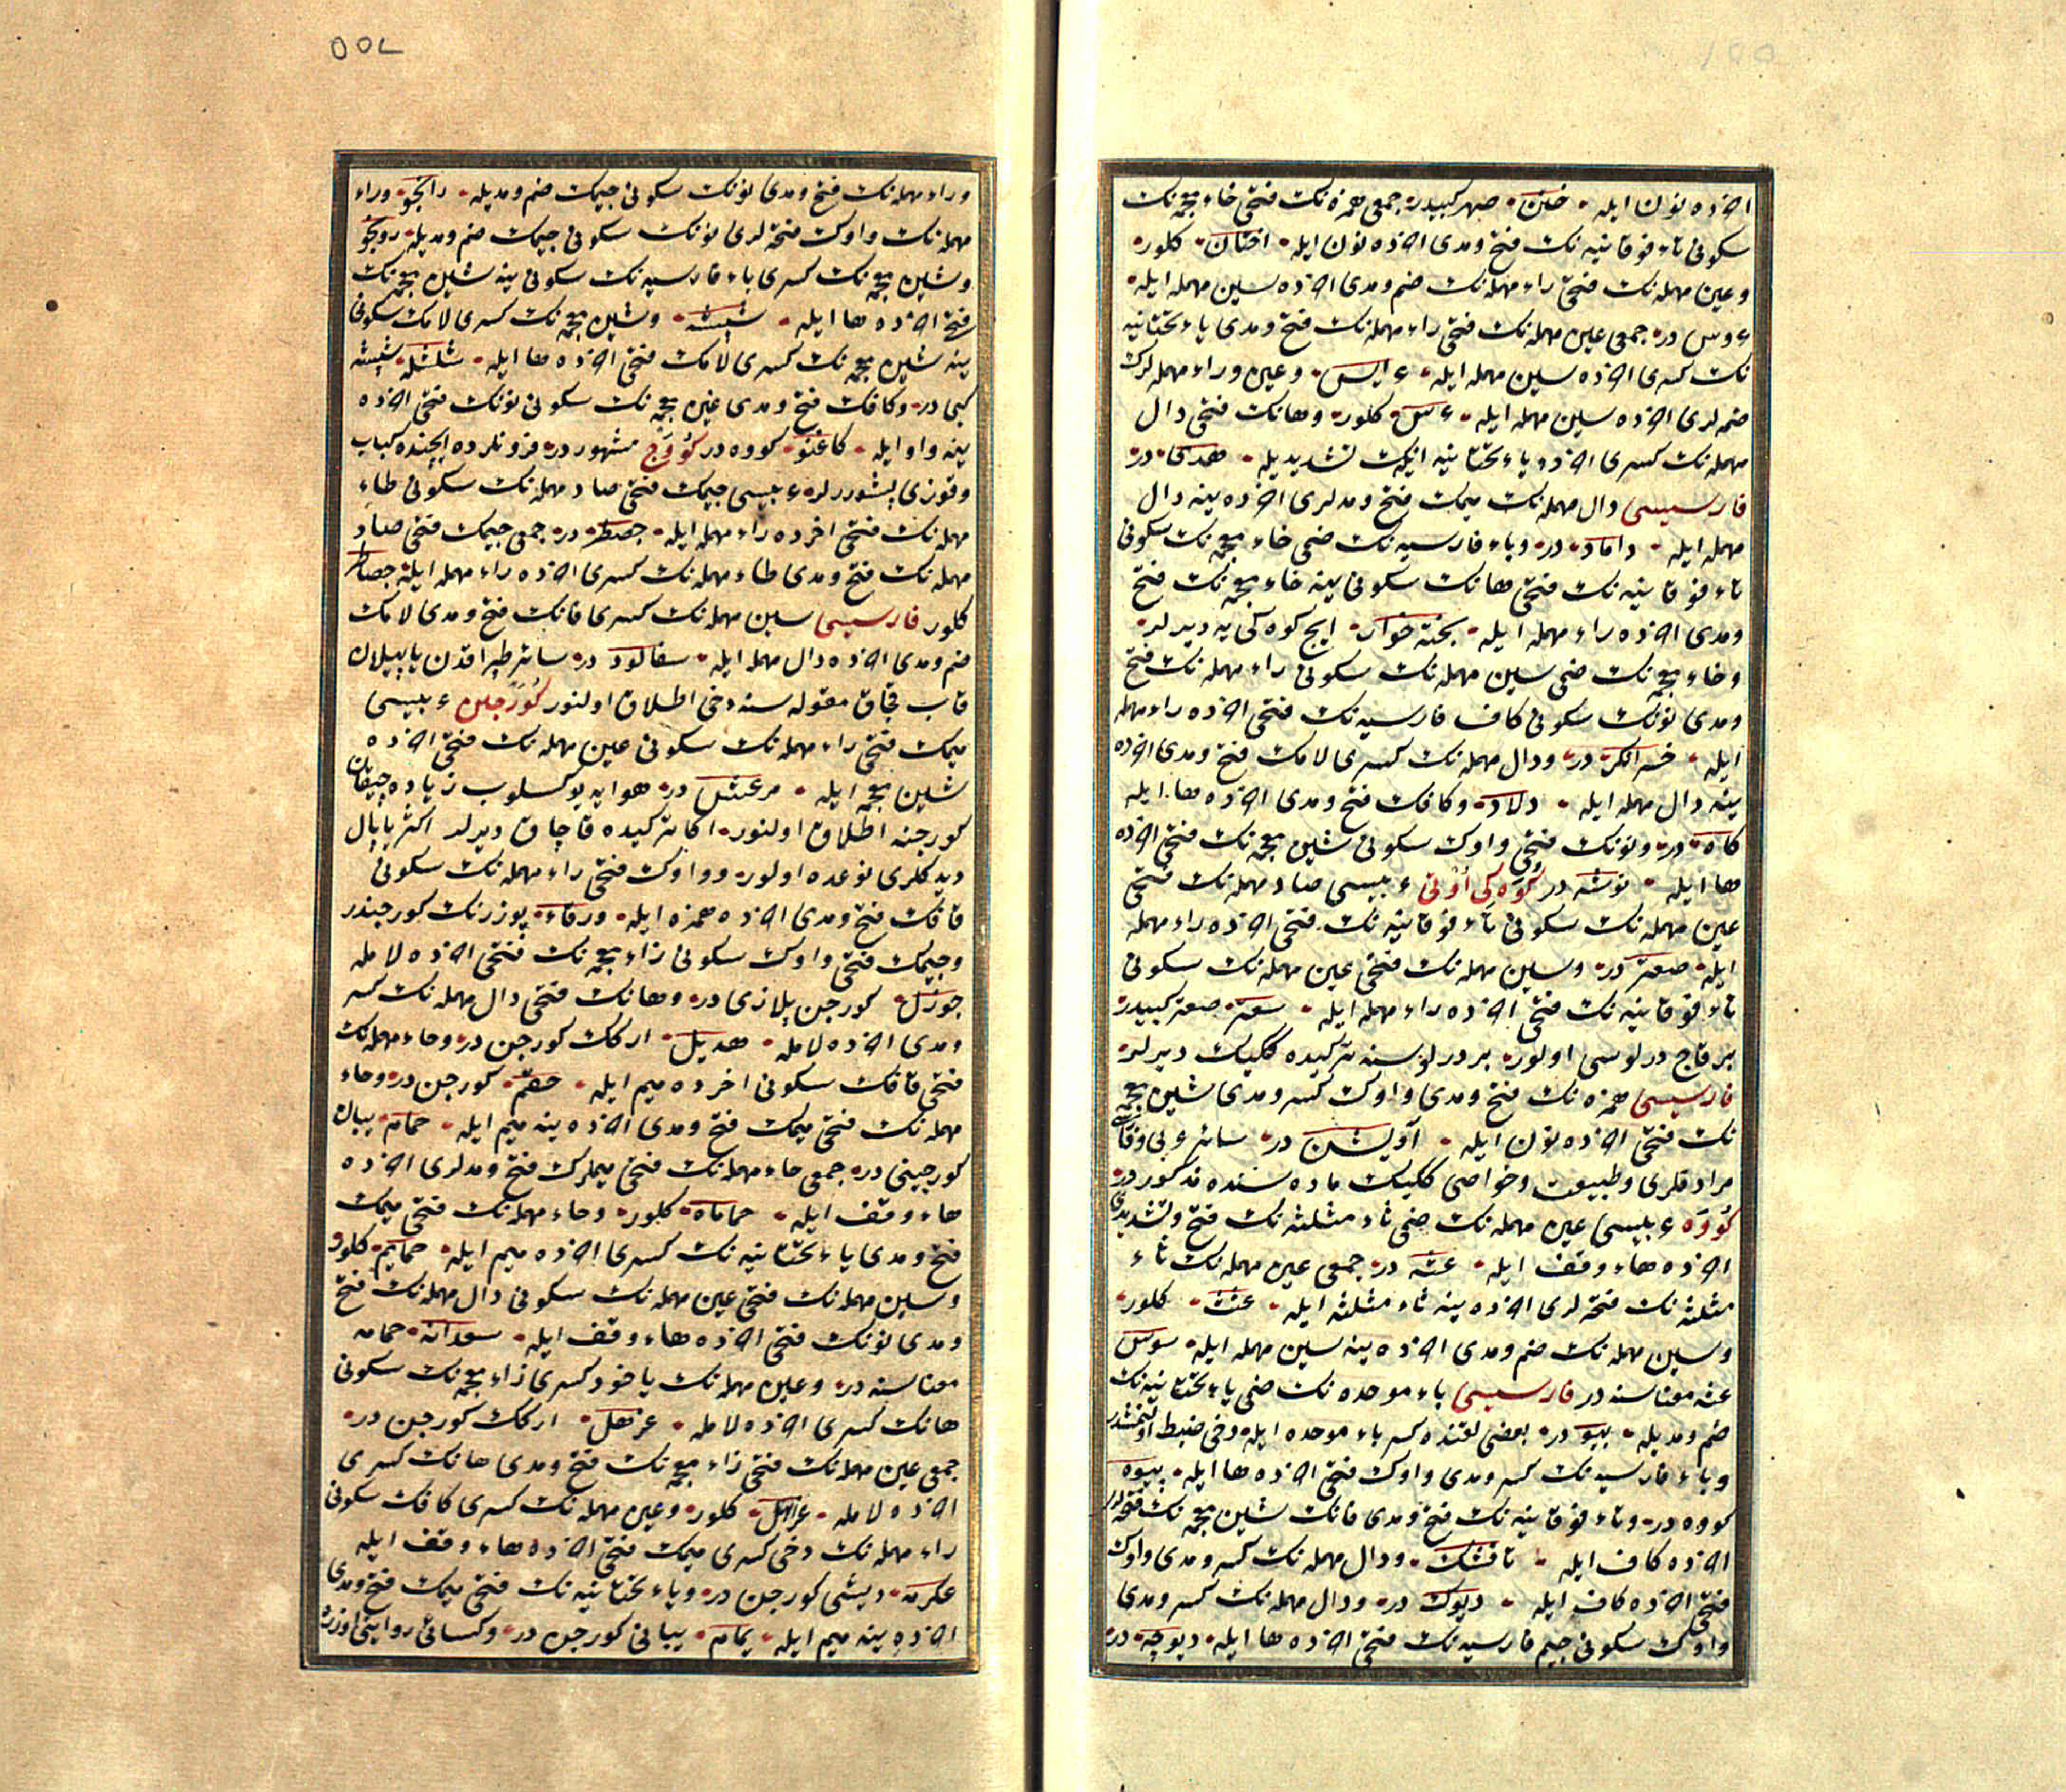 اخرده نون ایله • ختن • صهر کبیدر • جمعی همزه نك فتحی خاء معجمه نك
سکونی تاء فوقانیه نك فتح ومدی اخرده نون ایله • اختان • کلور •
وعین مهمله نك فتحی راء مهمله نك ضم ومدی اخرده سین مهمله ایله •
عروس در • جمعی عین مهمله نك فتحی راء مهمله نك فتح ومدی یاء تحتانیه
نك کسری اخرده سین مهمله ایله • عرایس • وعین وراء مهمله لرك
ضمه لری اخرده سین مهمله ایله • عرس • کلور • وهانك فتحی دال
مهمله نك کسری اخرده یاء تحتانیه انیکك تشدیدیله • هدی • در •
فارسیسی دال مهمله نك میمك فتح ومدلری اخرده ینه دال
مهمله ایله • داماد • در • وباء فارسیه نك ضمی خاء معجمه نك سکونی
تاء فوقانیه نك فتحی هانك سکونی ینه خاء معجمه نك فتح
ومدی اخرده راء مهمله ایله • پخته خوار • ایچ کوه کی یه دیرلر •
وخاء معجمه نك ضمی سین مهمله نك سکونی راء مهمله نك فتح
ومدی نونك سکونی کاف فارسیه نك فتحی اخرده راء مهمله
ایله • خسرانکر • در • ودال مهمله نك کسری لامك فتح ومدی اخرده
ینه دال مهمله ایله • دلاد • وکافك فتح ومدی اخرده ها ایله
کاه • در • ونونك فتحی واوك سکونی شین معجمه نك فتحی اخرده
ها ایله • نوشه در کوه کی اوتی عربیسی صاد مهمله نك فتحی
عین مهمله نك سکونی تاء فوقانیه نك فتحی اخرده راء مهمله
ایله • صعتر در • وسین مهمله نك فتحی عین مهمله نك سکونی
تاء فوقانیه نك فتحی اخرده راء مهمله ایله • سعتر • صعتر کبیدر •
بر قاج درلوسی اولور • بر درلوسنه ترکیده ککیك دیرلر •
فارسیسی همزه نك فتح ومدی واوك کسر ومدی شین معجمه
نك فتحی اخرده نون ایله • آویشن در • سائر عربی وفارسی
مرادفلری وطبیعت وخواصی ککیك ماده سنده مذکور در •
کووه عربیسی عین مهمله نك ضمی ثاء مثلثه نك فتح وتشدیدی
اخرده هاء وقف ایله • عثه در • جمعی عین مهمله نك ثاء
مثلثه نك فتحه لری اخرده ینه ثاء مثلثه ایله • عثث • کلور •
وسین مهمله نك ضم ومدی اخرده ینه سین مهمله ایله • سوس
عثه معناسنه در فارسیسی باء موحده نك ضمی یاء تحتانیه نك
ضم ومدیله • بیو • در • بعضی لغتنده کسر باء موحده ایله دخی ضبط اولنمشدر
وباء فارسیه نك کسر ومدی واوك فتحی اخرده ها ایله • پیوه
کووه در • وتاء فوقانیه نك فتح ومدی فانك شین معجمه نك فتحه لری
اخرده کاف ایله • تافشك • ودال مهمله نك کسر ومدی واوك
فتحی اخرده کاف ایله • دیوك در • ودال مهمله نك کسر ومدی
واوك سکونی جیم فارسیه نك فتحی اخرده ها ایله • دیوچه • در
وراء مهمله نك فتح ومدی نونك سکونی جیمك ضم ومدیله • رانجو • وراء
مهمله نك واوك فتحه لری نونك سکونی جیمك ضم ومدیله • رونجو
وشین معجمه نك کسری باء فارسیه نك سکونی ینه شین معجمه نك
فتحی اخرده ها ایله • شپشه • وشین معجمه نك کسری لامك سکونی
ینه شین معجمه نك کسری لامك فتحی اخرده ها ایله • شلشله • شپشه
کبی در • وکافك فتح ومدی غین معجمه نك سکونی نونك فتحی اخرده
ینه واو ایله • کاغنو • کووه در کووج مشهور در • فرونلرده ایچنده کباب
وقوزی پشوررلر • عربیسی جیمك فتحی صاد مهمله نك سکونی طاء
مهمله نك فتحی اخرده راء مهمله ایله • جصطر • در • جمعی جیمك فتحی صاد
مهمله نك فتح ومدی طاء مهمله نك کسری اخرده راء مهمله ایله • جصاطر
کلور فارسیسی سین مهمله نك کسری فانك فتح ومدی لامك
ضم ومدی اخرده دال مهمله ایله • سفالود در • سائر طپراقدن یاپیلان
قاب قجاق مقوله سنه دخی اطلاق اولنور کورجین عربیسی
میمك فتحی راء مهمله نك سکونی عین مهمله نك فتحی اخرده
شین معجمه ایله • مرعش در • هوایه یوکسلوب زیاده چیقان
کورجنه اطلاق اولنور • اکا ترکیده قاچاق دیرلر اکثر یاپال
دیدکلری نوعده اولور • وواوك فتحی راء مهمله نك سکونی
قافك فتح ومدی اخرده همزه ایله • ورقاء • بوزرنك کورجیندر
وجیمك فتحی واوك سکونی زاء معجمه نك فتحی اخرده لامله
جوزل • کورجن پلازی در • وهانك فتحی دال مهمله نك کسر
ومدی اخرده لامله • هدیل • ارکك کورجن در • وحاء مهمله نك
فتحی قافك سکونی اخرده میم ایله • حقم • کورجن در • وحاء
مهمله نك فتحی میمك فتح ومدی اخرده ینه میم ایله • حمام • یبان
کورجینی در • جمعی حاء مهمله نك فتحی میملرك فتح ومدلری اخرده
هاء وقف ایله • حمامات • کلور • وحاء مهمله نك فتحی میمك
فتح ومدی یاء تحتانیه نك کسری اخرده میم ایله • حمایم • کلور
وسین مهمله نك فتحی عین مهمله نك سکونی دال مهمله نك فتح
ومدی نونك فتحی اخرده هاء وقف ایله • سعدانه • حمامه
معناسنه در • وعین مهمله نك یاخود کسری زاء معجمه نك سکونی
هانك کسری اخرده لامله • عزهل • ارکك کورجن در •
جمعی عین مهمله نك فتحی زاء معجمه نك فتح ومدی هانك کسری
اخرده لامله • عزاهل • کلور • وعین مهمله نك کسری کافك سکونی
راء مهمله نك دخی کسری میمك فتحی اخرده هاء وقف ایله
عکرمه • دیشی کورجن در • ویاء تحتانیه نك فتحی میمك فتح ومدی
اخرده ینه میم ایله • یمام • یبانی کورجن در • وکسائی روایتی اوزره